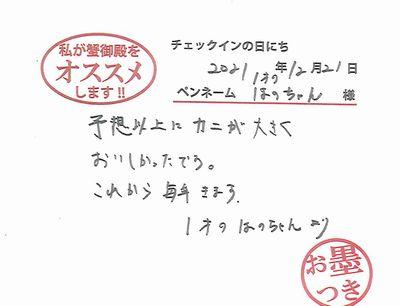 私が蟹御殿を
オススメ
します!!
チェックインの日にち
2021年12月21日
ペンネーム 1才の はのちゃん 様
予想以上に カニが 大きく
おいしかったです。
これから 毎年 きます。
1才の はのちゃん より
お墨
つき